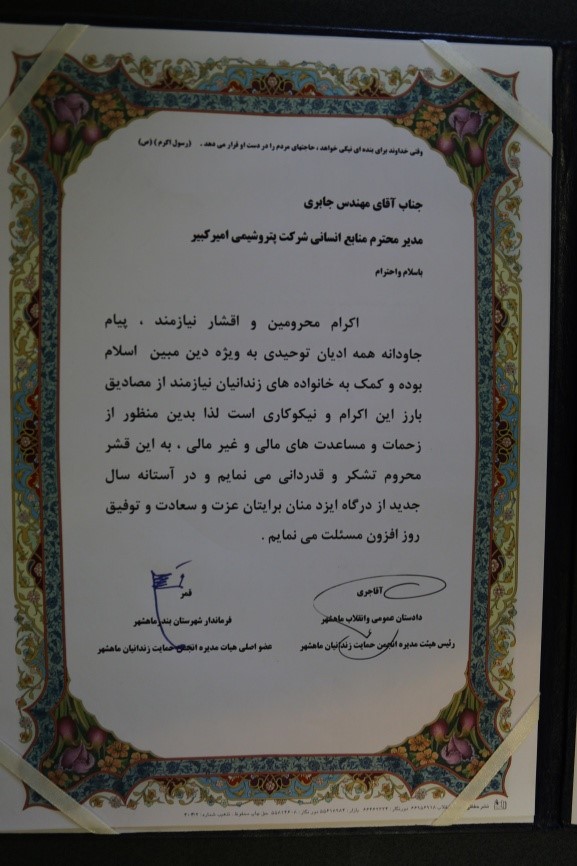 وقتی خداوند برای بنده ای نیکی خواهد ، حاجتهای مردم را در دست او قرار می دهد . (رسول اکرم ) (ص)
جناب آقای مهندس جابری
مدیر محترم منابع انسانی شرکت پتروشیمی امیرکبیر
باسلام واحترام
اکرام محرومین و اقشار نیازمند ، پیام
جاودانه همه ادیان توحیدی به ویژه دین مبین اسلام
بوده و کمک به خانواده های زندانیان نیازمند از مصادیق
بارز این اکرام و نیکوکاری است لذا بدین منظور از
زحمات و مساعدت های مالی و غیر مالی ، به این قشر
محروم تشکر و قدردانی می نمایم و در آستانه سال
جدید از درگاه ایزد منان برایتان عزت و سعادت و توفیق
روز افزون مسئلت می نمایم .
آقاجری
دادستان عمومی وانقلاب ماهشهر
رئیس هیئت مدیره انجمن حمایت زندانیان ماهشهر
قمر
فرماندار شهرستان بندرماهشهر
عضو اصلی هیات مدیره انجمن حمایت زندانیان ماهشهر